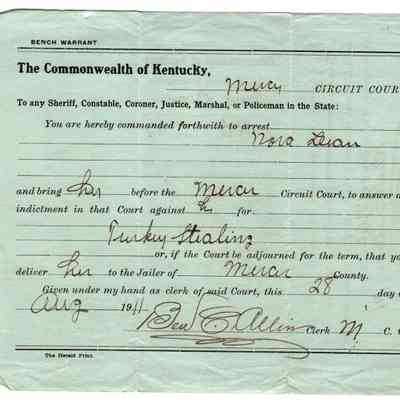 BENCH WARRANT
The Commonwealth of Kentucky,
Mercer CIRCUIT COUR
To any Sheriff, Constable, Coroner, Justice, Marshal, or Policeman in the State:
You are hereby commanded forthwith to arrest
Nora
and bring her before the Mercer Circuit Court, to answer a
indictment in that Court against h for
Turkey Stealing
or, if the Court be adjourned for the term, that yo
deliver her to the Jailer of Mercer County.
Given under my hand as clerk of said Court, this 28 day o
Aug 1911 Ben C Allin Clerk M C. C
The Herald Print.